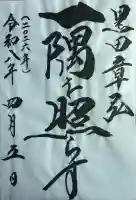 黒田章弘
一隅を照らす
（二〇二六年）
令和八年 四月五日